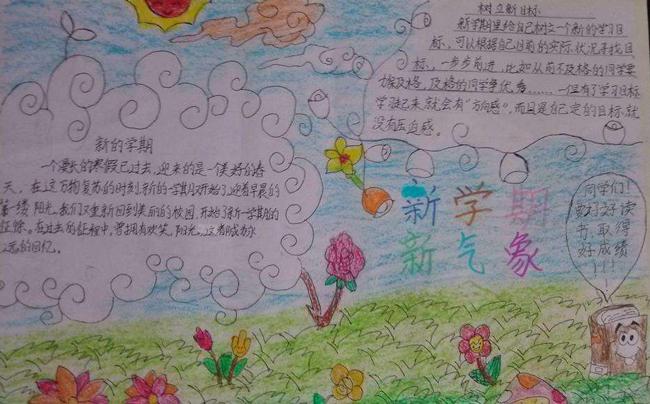 树立新目标
新学期里给自己树立一个新的学习目
标，可以根据自己目前的实际状况寻找目
标，一步步前进，比如从前不及格的同学要
埃及格，及格的同学争优秀……一但有了学习目标
学习起来就会有“方向感”，而且是自己定的目标，就
没有压迫感。
新的学期
一个漫长的寒假已过去，迎来的是一个美好的春
天，在这万物复苏的时刻，新的一学期又开始了，迎着早晨的
第一缕阳光，我们又重新回到美丽的校园，开始了新一学期的
征途。在过去的征程中，曾拥有欢笑，阳光，这都成为永
远的回忆。
新学期
新气象
同学们！
要好好读
书，取得
好成绩
！！！